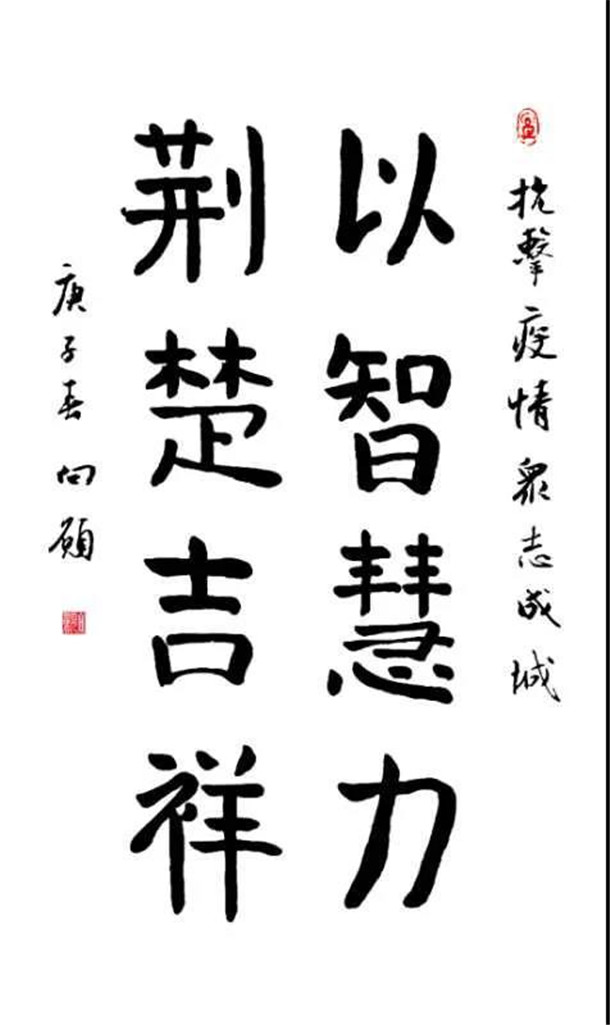 抗擊疫情衆志成城
以智慧力
荆楚吉祥
庚子春向願